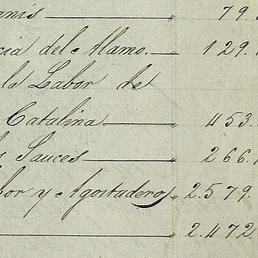 79.
cia del Alamo. — " 129.
la Labor de
Catalina — " 453.
Sauces — " 266.
bor y Agostadero " 2.579.
— " 2.472.